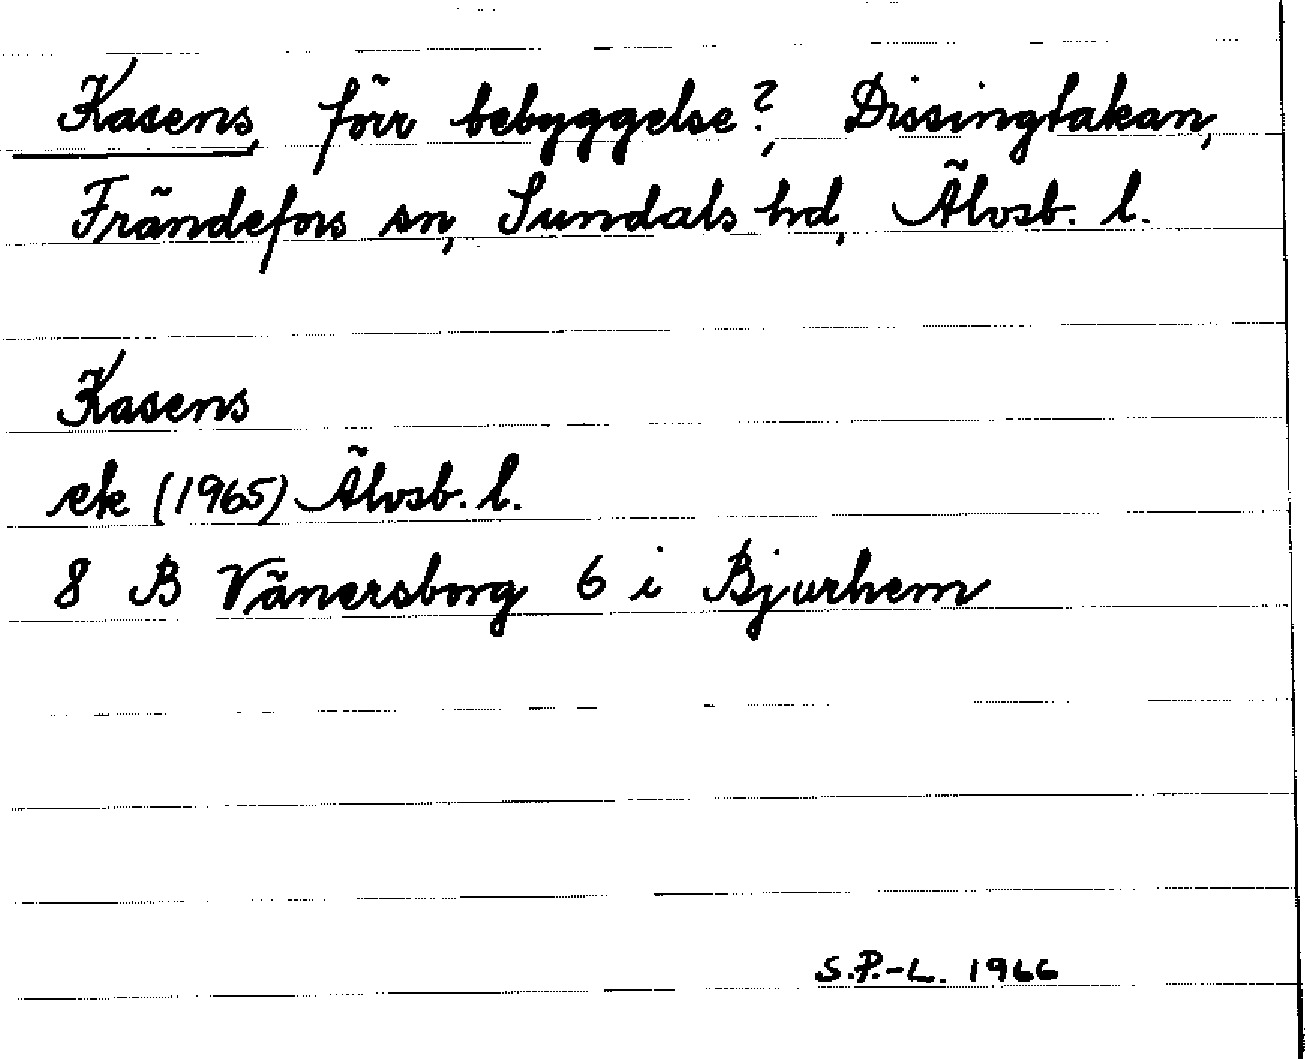 Kasens, förr bebyggelse?, Dissingtakan,
Frändefors sn, Sundals hd, Älvsb. l.
Kasens
ek (1965) Älvsb. l.
8 B Vänersborg 6 i Bjurhem
S.P.-L. 1966